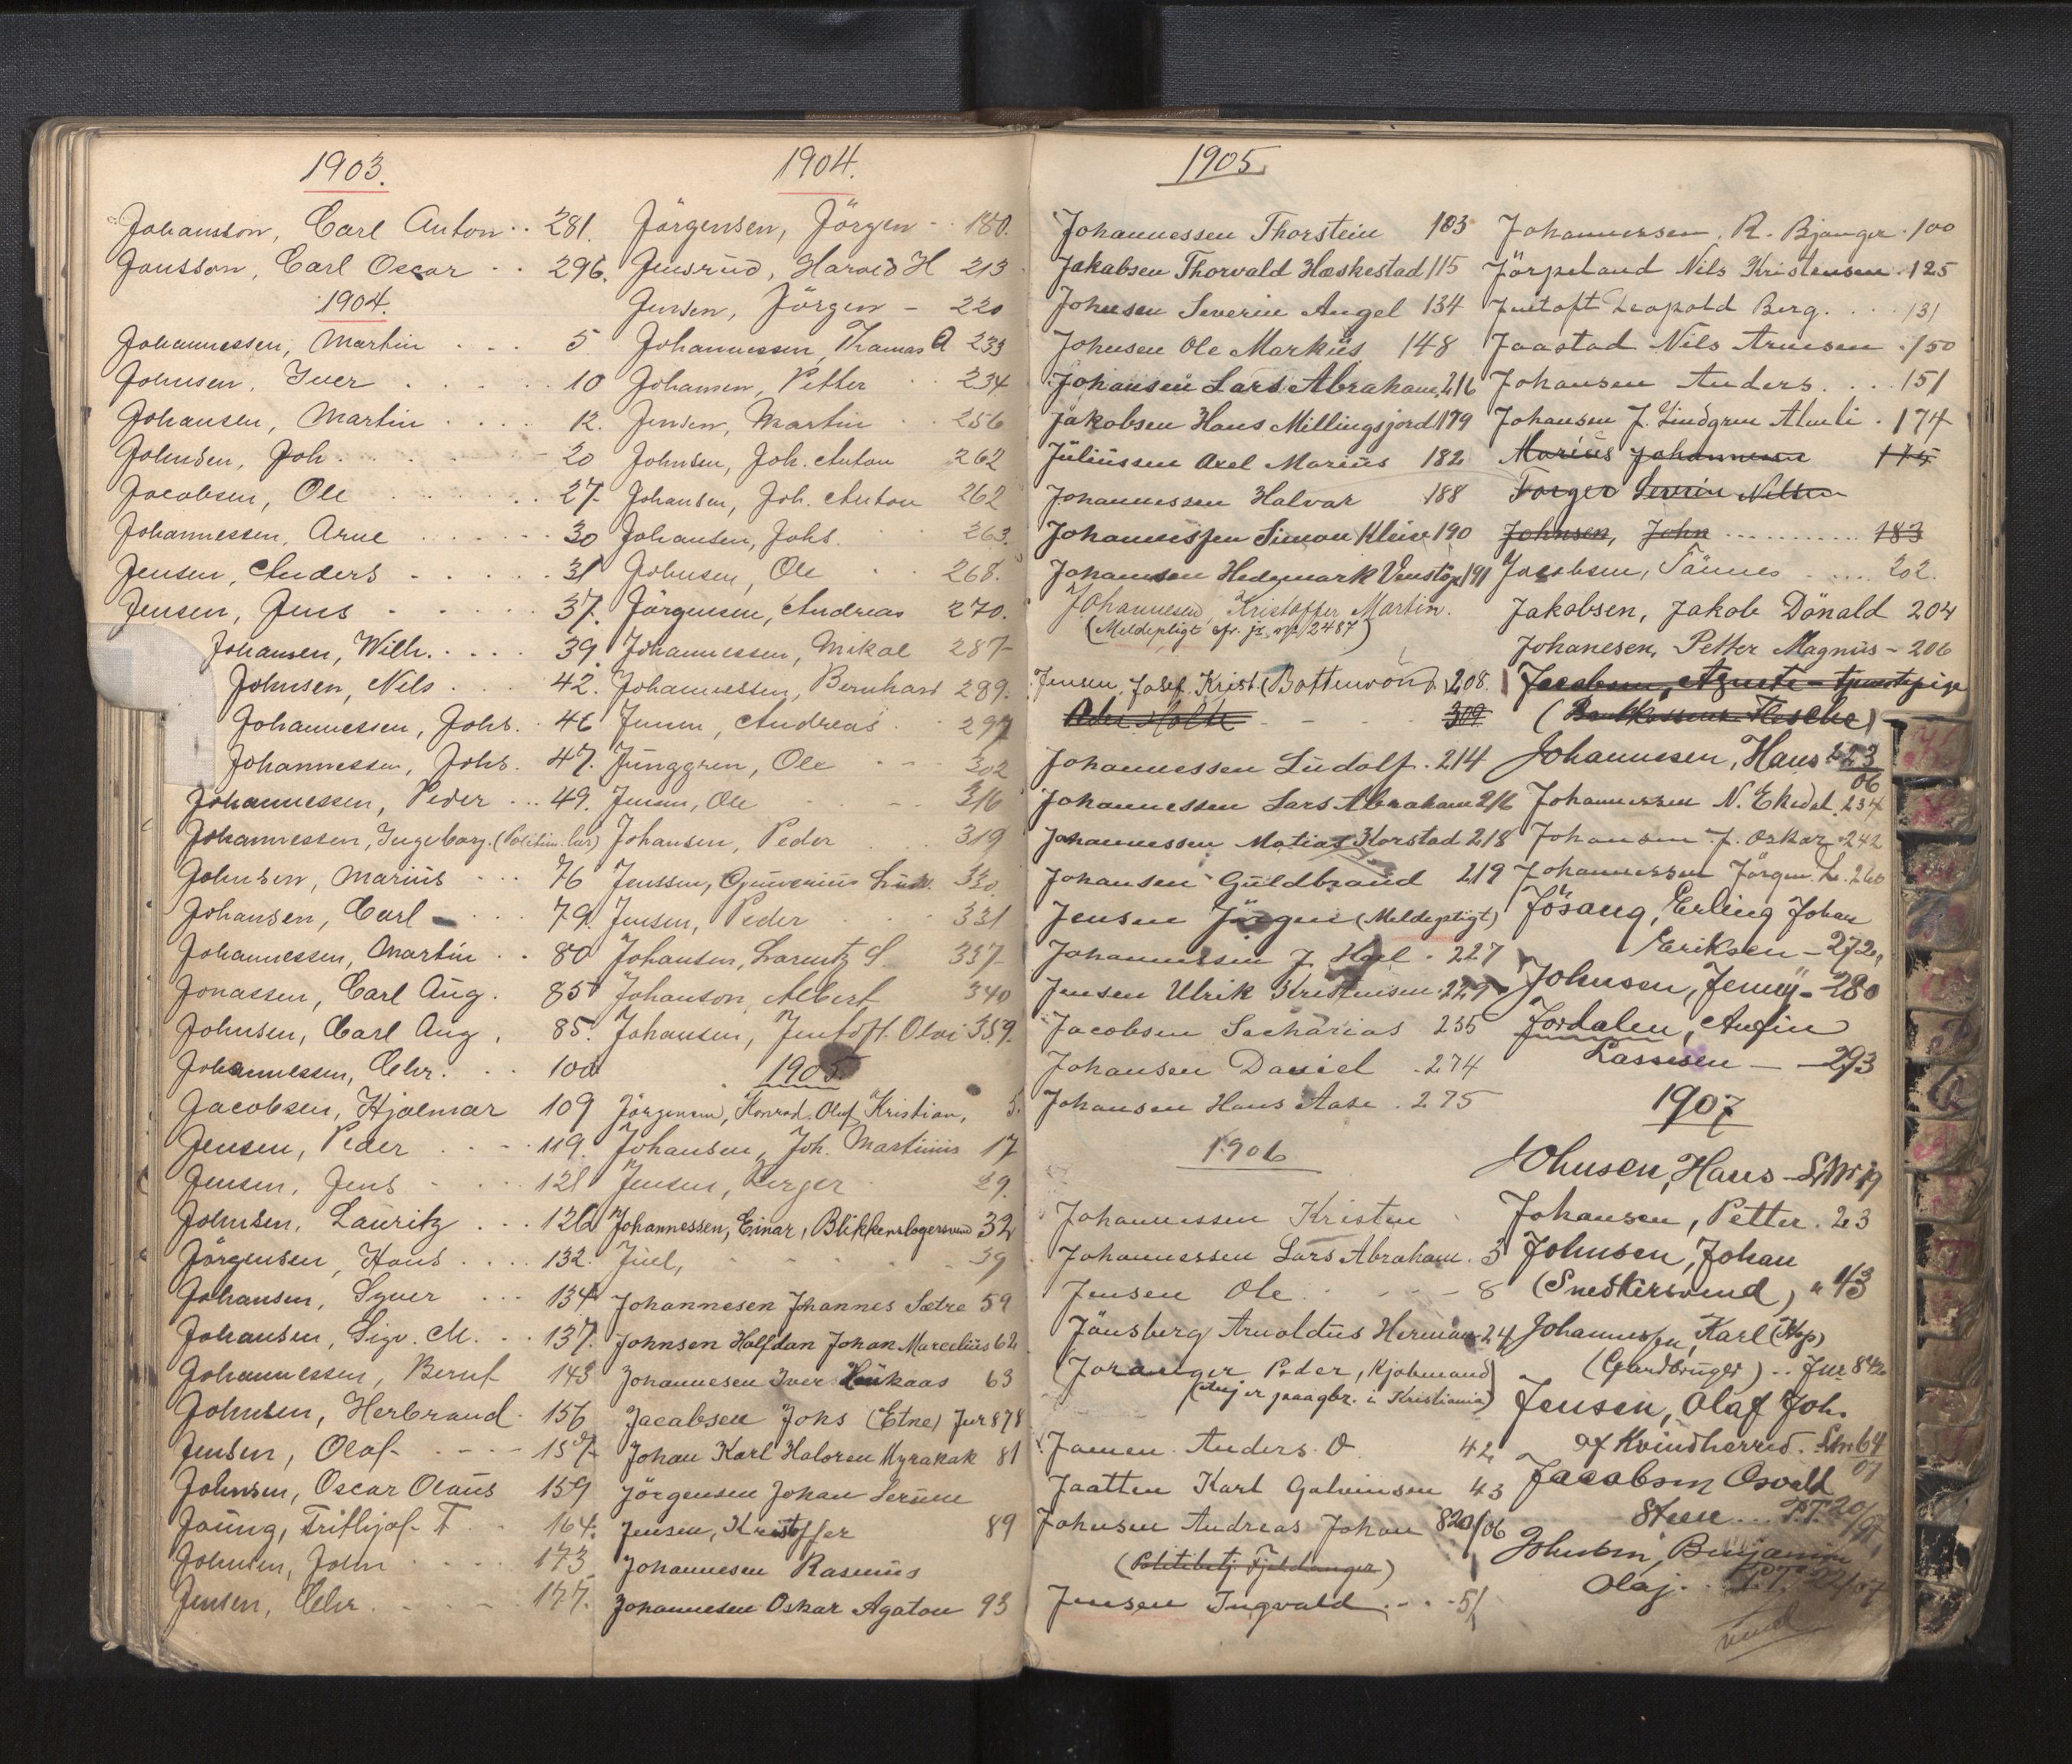 1903.
Johansson, Carl Anton .. 281.
Jonsson, Carl Oscar .. 296.
1904.
Johannessen, Martin ... 5
Johnsen, Iver ..... 10
Johansen, Martin .... 12.
Johnsen, Joh. ..... 20
Jacobsen, Ole ..... 27
Johannessen, Arne ...... 30
Jensen, Anders ..... 31
Jensen, Jens ..... 37.
Johansen, Wilh. .... 39.
Johnsen, Nils ... 42.
Johannessen, Johs. . 46
Johannessen, Johs. 47.
Johannessen, Peder ... 49.
Johannessen, Ingeborg.
Johnsen, Marius ... 76
Johansen, Carl - ... 79.
Johannessen, Martin .. 80
Jonassen, Carl Aug. 85
Johnsen, Carl Aug. 85.
Johannessen, Chr. .. 100
Jacobsen, Hjalmar 109
Jensen, Peder ... 119.
Jensen, Jens .... 121
Johnsen, Lauritz ... 126
Jörgensen, Hans .... 132.
Johansen, Syver ... 134
Johansen, Sigv. M. .. 137.
Johannessen, Bernt 143
Johnsen, Herbrand. 156
Jensen, Olaf - .... 157
Johnsen, Oscar Olaus 159
Joüng, Frithjof. F .. 164.
Johnsen, John .... 173
Jensen, Chr. .... 177.
1904.
Jörgensen, Jörgen - . 180.
Jensrud, Harald H 213
Jensen, Jörgen - 220
Johannessen, Thomas A 233
Johansen, Petter .. 234
Jensen, Martin .. 256
Johnsen, Joh. Anton 262
Johansen, Joh. Anton 262
Johansen, Johs. .. 263.
Johnsen, Ole .. 268.
Jörgensen, Andreas 270.
Johannessen, Mikal 287
Johannessen, Bernhard 289.
Jensen, Andreas .. 297
Jünggren, Ole .. 302
Jensen, Ole .... 316
Johansen, Peder ... 319
Jenssen, 330
Jensen, Peder .. 331
Johansen, Lorentz S. 337
Johanson, Albert 340
Johansen, Jentoft. Olai 359.
1905.
Jörgensen, Konrad. Oluf Kristian, 5.
Johansen, Joh. Martinius 17
Jensen, Birger . 29.
Johannessen, Einar, Blikkenslagersvend 32
Juel, ...... 39
Johannesen Johannes Sætre 59
Johnsen Halfdan Johan Marcelius 62
Johannesen Iver 63
Jacobsen Johs (Etne) Jur 878
Johan Karl Halvren Myrakak 81
Jörgensen Johan
Jensen, Kristoffer 89
Johannesen Rasmus
Johannesen Oskar Agaton 93
1905
Johannessen Thorstein 103
Jakobsen Thorvald Hæskestad 115
Johnsen Severin Angel 134
Johnsen Ole Markus 148
Johansen Lars Abraham, 216
Jakobsen Hans Millingsjord 179
Juliussen Axel Marius 182
Johannessen Halvar 188
Johannessen Simon Kleive 190
Johansen Hedemark 191
Johannesen, Kristoffer Martin.
(Meldepligt cfr. jr. 2487)
Jensen, Josef. Krist. (Bottenvond) 208.
309
Johannessen Ludolf. 214
Johannessen Lars Abraham 216
Johannessen Matias Korstad 218
Johansen Guldbrand 219
Jensen Jörgen (Meldepligt)
Johannessen J. 227
Jensen Ulrik Kristensen. 229
Jacobsen Sacharias 235
Johansen Daniel . 274
Johansen Hans Aase . 275
1906
Johannessen Kristen .
Johannessen Lars Abraham. 3
Jensen Ole .... 8
Jönsberg Arnoldus Herman 24
(Joranger Peder, Kjöbmand)
i Kristiania)
Jansen Anders. O 42
Jaatten Karl Galvinsen 43
Johnsen Andreas Johan 820/06
(Politibetj. Fjeldanger)
Jensen Ingvald .... 51
Johannessen, R. Bjanger . 100
Jörpeland Nils Kristensen . 125
Jentoft Leopold Berg. ... 131
Jaastad Nils Arnesen . 150
Johansen Anders. ... 151
Johansen J. Lindgren . 174
Marius Johannessen 175
Torger Severin Nilsen
Johnsen, John .......... 183
Jacobsen, Tönnes .... 202.
Jakobsen, Jakob Dönald 204
Johanesen, Petter Magnus - 206
Jacobsen,
Johannessen, Hans 223/06
Johannessen N. Ekedal. 234
Johansen J. Oskar. 242
Johannessen Jörgen. L. 260
Jösang, Erling Johan
Eriksen - 272.
Johnsen, Jenny - 280
Jordalen, Anfin
Lassesen - - 293
1907
Johnsen, Hans - 19
Johansen, Petter. 23
Johnsen, Johan
(Snedkersvend) " 43
Johannessen, Karl (Hop)
(Gardbruger) .. Jur 842
Jensen, Olaf Joh.
af Kvindherred. 64/07
Jacobsen Osvald
Steen ... P.T. 20/07
Johnsen, Benjamin
Olaj. .. P.T. 22/07
vend